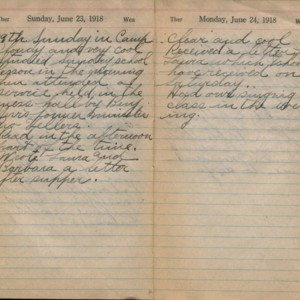 Ther Sunday, June 23, 1918 Wea
4th Sunday in Camp
Cloudy and very cool
attended Sunday school
lesson in the morning
then attended
service held in the
mess hall by
former minister

and in the afternoon
part of the time.
Wrote Laura and
Barbara a letter
after supper.
Ther Monday, June 24, 1918 Wea
Clear and cool
Received a letter
Laura which should
have received on
Saturday.
Had our singing
class in the even
ing.